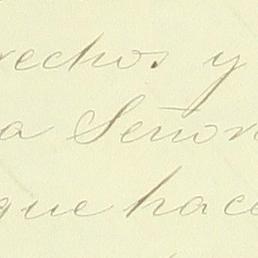 rechos y
a Señor
que hace